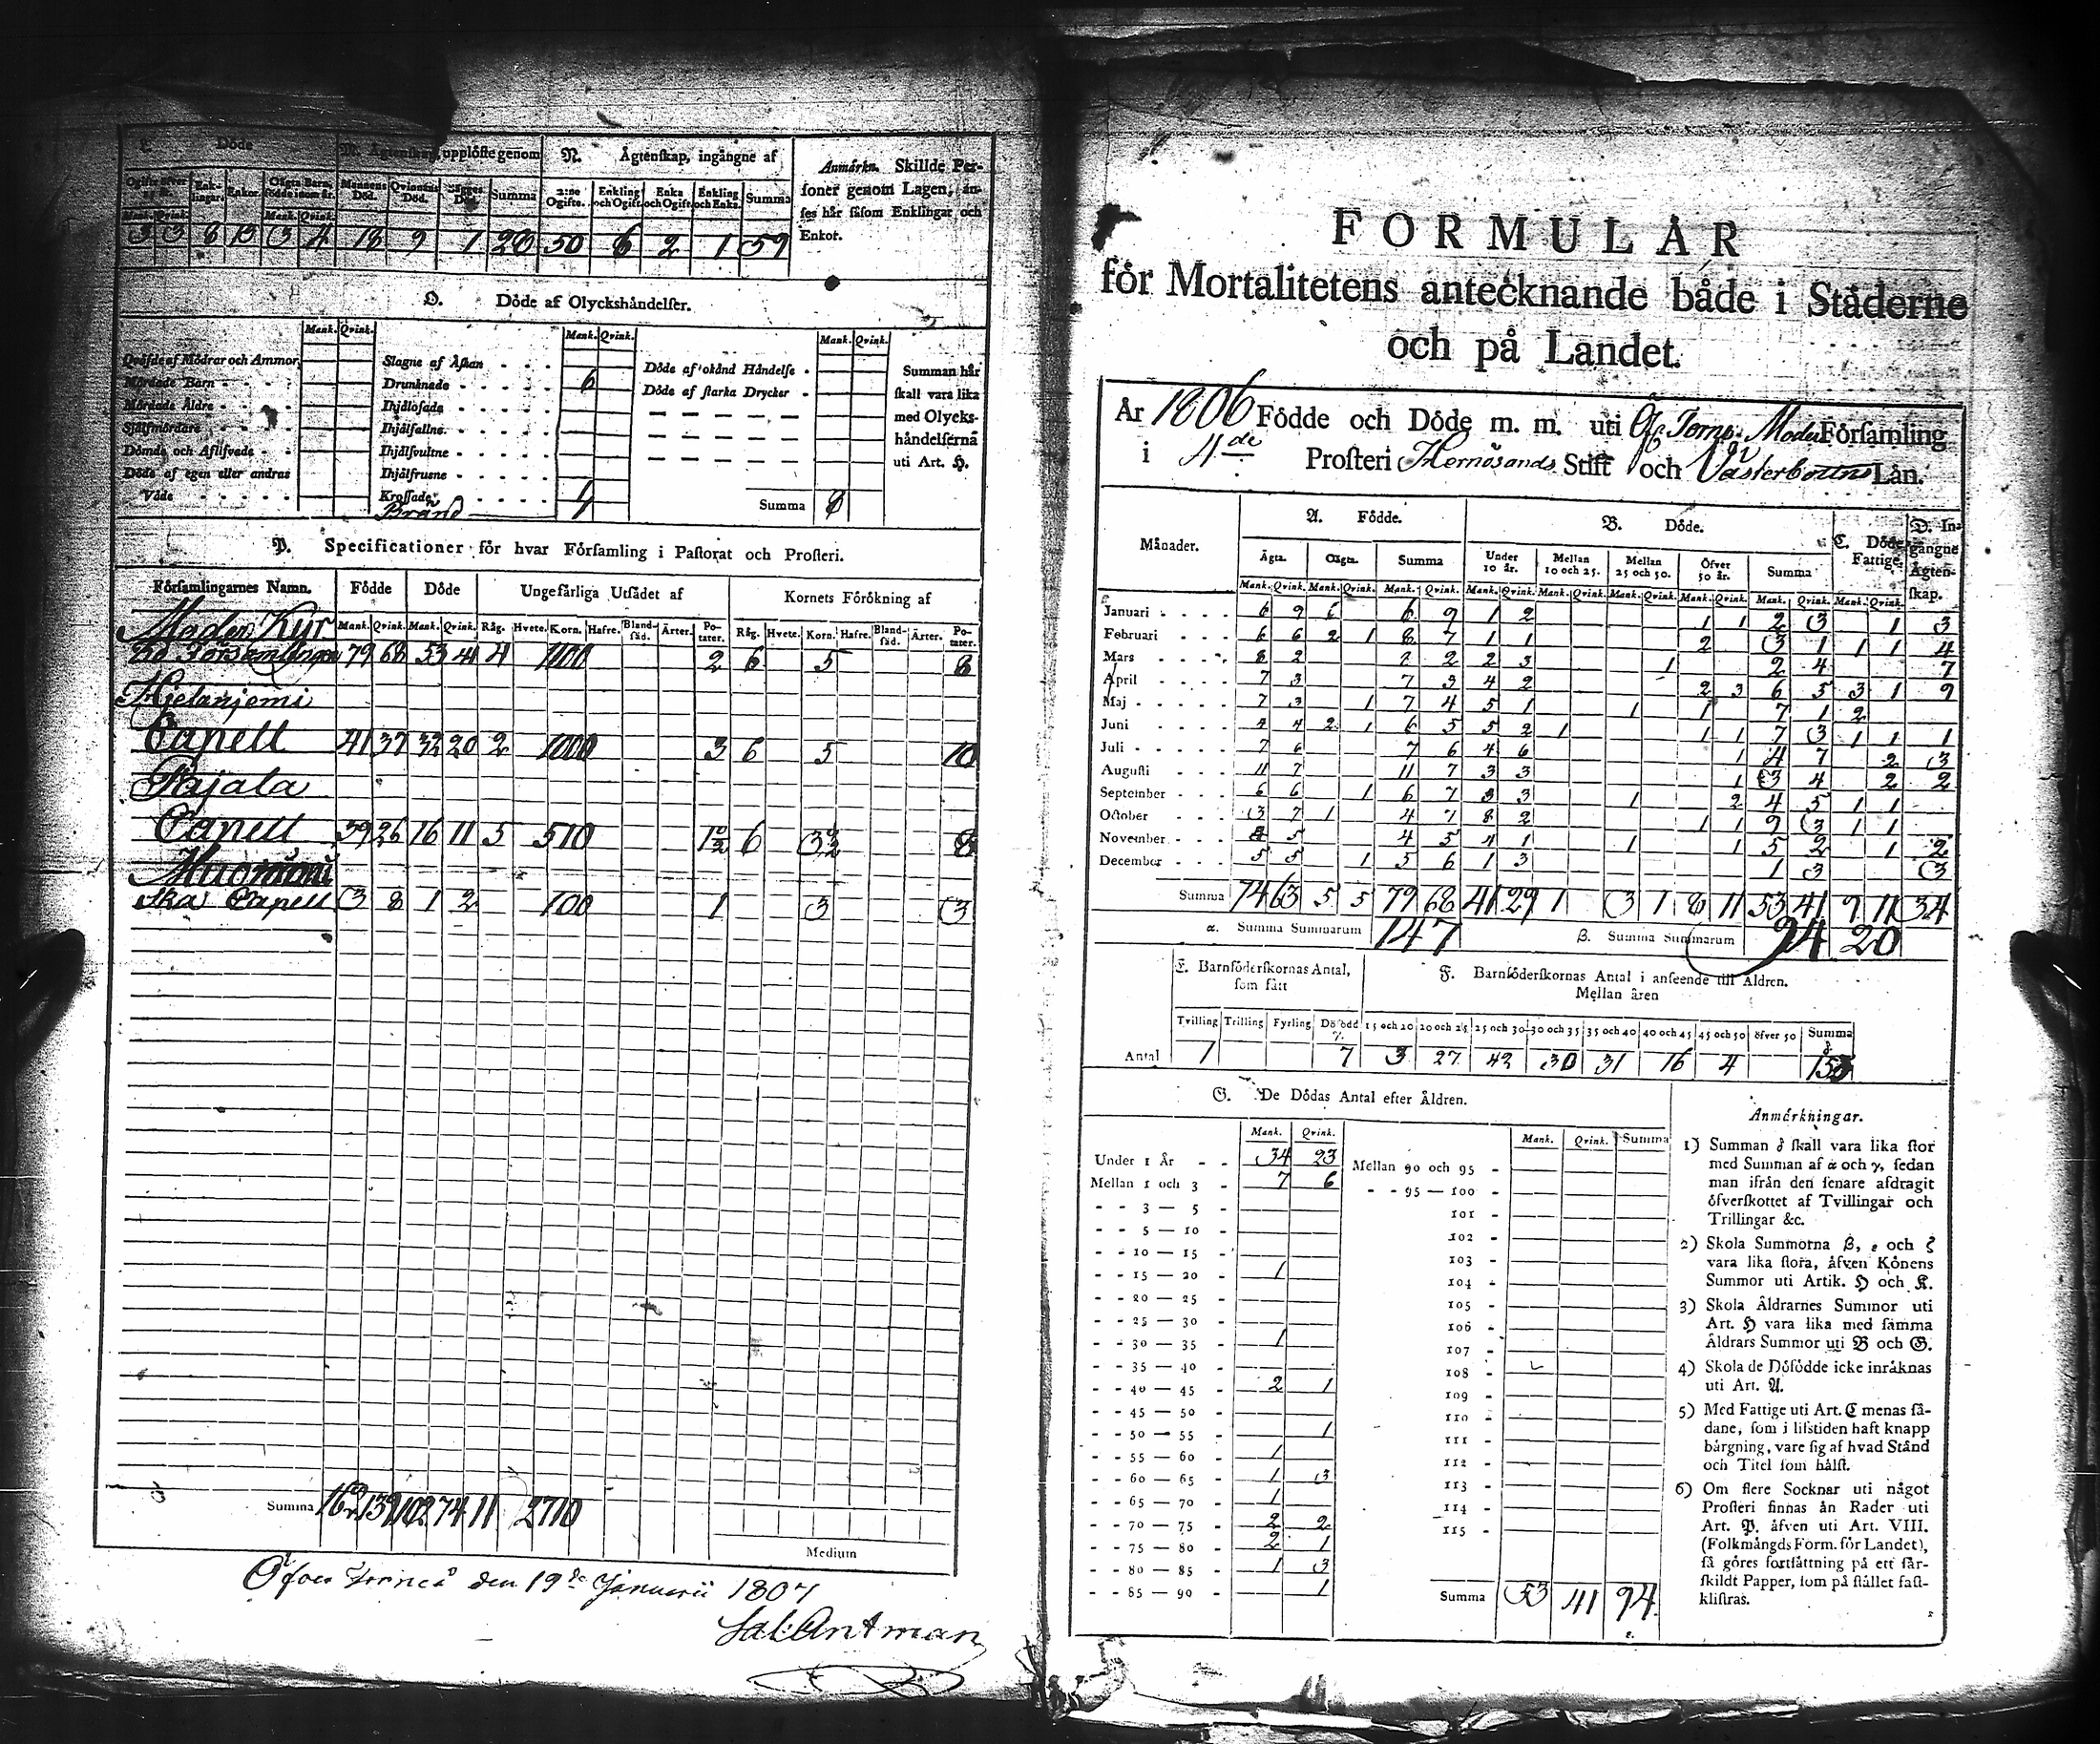 L. Döde
M. Ägtenskap, upplöste genom
N. Ägtenskap, ingångne af
Anmärkn. Skillde Per-
soner genom Lagen, an-
ses här såsom Enklingar och
Enkor.
Enk-lingar. Enkor. Oägta Barn, födde inom år. Mannens Död. Qvinnans Död. Summa 2:ne Ogifte. Enkling och Ogift. Enka och Ogift. Enkling och Enka. Summa
Mank. Qvink. Mank. Qvink.
3 3 8 13 3 4 18 9 1 28 50 6 2 1 59
O. Döde af Olyckshändelser.
Mank. Qvink. Mank. Qvink. Mank. Qvink.
Qväfde af Mödrar och Ammor.
Mördade Barn
Mördade Äldre
Självmördare
Dömde och Aflifvade
Döde af egen eller andras
Våde
Slagne af Åskan
Drunknade 6
Ihjälofade
Ihjälfallne.
Ihjälsvultne
Ihjälfrusne
Krossade
Bränd
Döde af okänd Händelse
Döde af starka Drycker
Summa 8
Summan här
skall vara lika
med Olycks-
händelserna
uti Art. H.
P. Specificationer för hvar Församling i Pastorat och Prosteri.
Församlingarnes Namn. Födde Döde Ungefärliga Utsädet af Kornets Förökning af
Mank. Qvink. Mank. Qvink. Råg. Hvete. Korn. Hafre. Bland-säd. Ärter. Po-tater. Råg. Hvete. Korn. Hafre. Bland-säd. Ärter. Po-tater.
Moder Kyr
ko Församlingen 79 68 53 41 4 1100 2 6 5 8
Hjetanjemi
Capell 41 37 32 20 2 1000 3 6 5 10
Capell 39 26 16 11 5 510 1½ 6 3½ 8
Muonioni
ska Capell 3 8 1 2 100 1 3 3
Summa 162 139 102 74 11 2710
Medium
Öfver Torneå den 19de Januarii 1807
FORMULÄR
för Mortalitetens antecknande både i Städerne
och på Landet.
År 1806 Födde och Döde m. m. uti Öf. Torne Moder Församling
i 4de Prosteri Hernösands Stift och Västerbottns Län.
Månader. A. Födde. B. Döde. C. Döde Fattige. D. In-gångne Ägten-skap.
Ägta. Oägta. Summa Under 10 år. Mellan 10 och 25. Mellan 25 och 50. Öfver 50 år. Summa
Mank. Qvink. Mank. Qvink. Mank. Qvink. Mank. Qvink. Mank. Qvink. Mank. Qvink. Mank. Qvink. Mank. Qvink. Mank. Qvink.
Januari 6 9 6 9 1 2 1 1 2 3 1 3
Februari 6 6 2 1 8 7 1 1 2 3 1 1 1 4
Mars 8 2 2 2 3 1 2 4 7
April 7 3 7 3 4 2 2 3 6 5 3 1 9
Maj 7 3 1 7 4 5 1 1 1 7 1 2
Juni 4 4 2 1 6 5 5 2 1 1 1 7 3 1 1 1
Juli 7 6 7 6 4 6 1 4 7 2 3
Augusti 11 7 11 7 3 3 1 3 4 2 2
September 6 6 1 6 7 3 3 1 2 4 5 1 1
October 3 7 1 4 7 8 2 1 1 9 3 1 1
November 4 5 4 5 4 1 1 1 5 2 1 2
December 5 5 1 5 6 1 3 1 3 3
Summa 74 63 5 5 79 68 41 29 1 3 1 8 11 53 41 9 11 34
α. Summa Summarum 147 β. Summa Summarum 94 20
E. Barnsöderskornas Antal,
som fått
F. Barnsöderskornas Antal i anseende till Åldren.
Mellan åren
Tvilling Trilling Fyrling Dödfödd γ. 15 och 20 20 och 25 25 och 30 30 och 35 35 och 40 40 och 45 45 och 50 öfver 50 Summa δ.
Antal 1 7 3 27 42 30 31 16 4 153
G. De Dödas Antal efter Åldren.
Mank. Qvink. Mank. Qvink. Summa
Under 1 År 34 23
Mellan 1 och 3 7 6
3 — 5
5 — 10
10 — 15
15 — 20 1
20 — 25
25 — 30
30 — 35 1
35 — 40
40 — 45 2 1
45 — 50
50 — 55 1
55 — 60 1
60 — 65 1 3
65 — 70 1
70 — 75 2 2
75 — 80 2 1
80 — 85 1 3
85 — 90 1
Mellan 90 och 95
95 — 100
101
102
103
104
105
106
107
108
109
110
111
112
113
114
115
Summa 53 41 94
ε.
Anmärkningar.
1) Summan δ skall vara lika stor
med Summan af α och γ, sedan
man ifrån den senare afdragit
öfverskottet af Tvillingar och
Trillingar &c.
2) Skola Summorna β, ε och ζ
vara lika stora, äfven Könens
Summor uti Artik. H och K.
3) Skola Åldrarnes Summor uti
Art. H vara lika med samma
Åldrars Summor uti B och G.
4) Skola de Dödfödde icke inräknas
uti Art. A.
5) Med Fattige uti Art. C menas så-
dane, som i lifstiden haft knapp
bärgning, vare sig af hvad Stånd
och Titel som hälst.
6) Om flere Socknar uti något
Prosteri finnas än Rader uti
Art. P. äfven uti Art. VIII.
(Folkmängds Form. för Landet),
så göres fortsättning på ett sär-
skildt Papper, som på stället fast-
klistras.